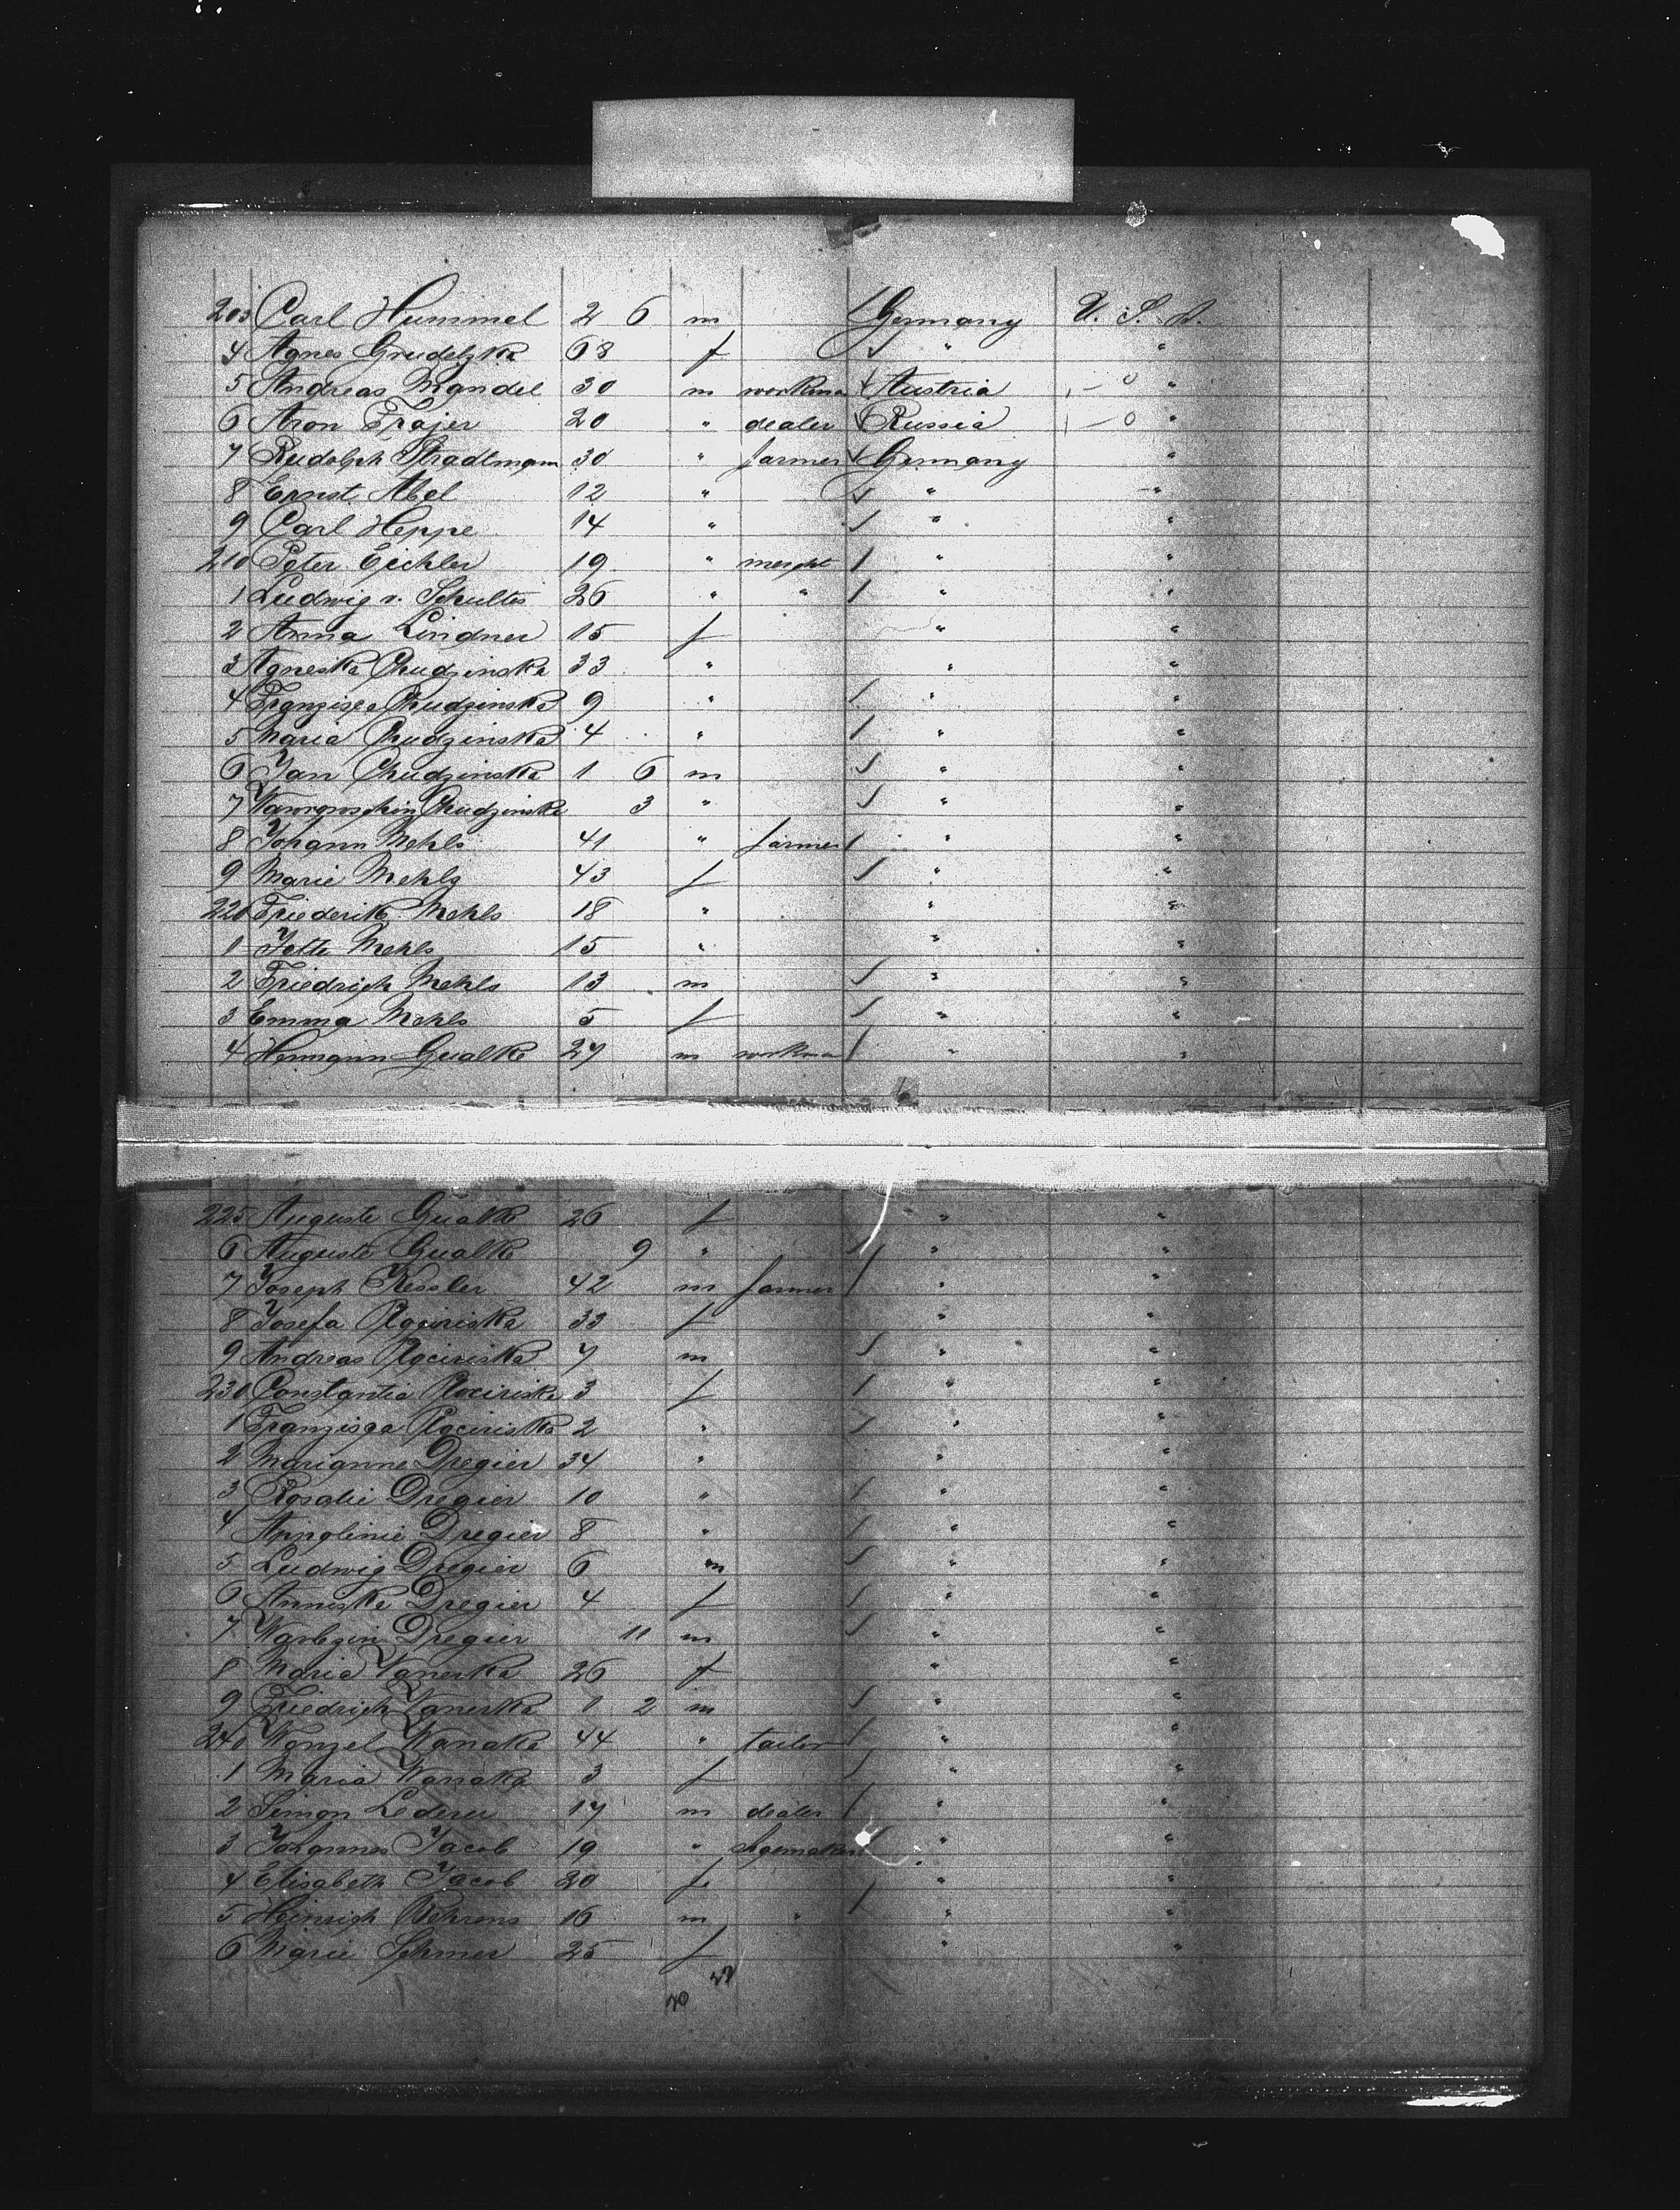 203 Carl Hummel 2 6 m Germany U. S. A.
4 Agnes Grudelzka 68 f " "
5 Andreas Mandel 30 m workman Austria — 0 "
6 Aron Frajer 20 " dealer Russia — 0 "
7 Rudolph Stradtmann 30 " farmer Germany "
8 Ernst Abel 12 " " "
9 Carl Heppe 14 " " "
210 Peter Eichler 19 " mercht " "
1 Ludwig v. Schultes 26 " " " "
2 Anna Lindner 15 f " "
3 Agneska Chudzinska 33 " " "
4 Franzisca Chudzinska 9 " " "
5 Maria Chudzinska 4 " " "
6 Jan Chudzinska 1 6 m " "
7 Chudzinska 3 " " "
8 Johann Mehls 41 " farmer " "
9 Marie Mehls 43 f " "
220 Friederike Mehls 18 " " "
1 Jette Mehls 15 " " "
2 Friedrich Mehls 13 m " "
3 Emma Mehls 5 f " "
4 Hermann Gualke 27 m workman " "
225 Auguste Gualke 26 f " "
6 Auguste Gualke 9 " " "
7 Joseph Kessler 42 m farmer " "
8 Josefa 33 f " "
9 Andreas 7 m " "
230 Constantia 3 f " "
1 Franzisca 2 " " "
2 Marianne Dregier 34 " " "
3 Rosalie Dregier 10 " " "
4 Appolinie Dregier 8 " " "
5 Ludwig Dregier 6 m " "
6 Anniska Dregier 4 f " "
7 Dregier 11 m " "
8 Maria Vaneska 26 f " "
9 Friedrich Vaneska 1 2 m " "
240 Wenzel Wanaka 44 " tailor " "
1 Maria Wanaka 3 f " "
2 Simon Lederer 17 m dealer " "
3 Johannes Jacob 19 " shoemaker " "
4 Elisabeth Jacob 20 f " "
5 Heinrich Behrens 16 m " " "
6 Marie Schmer 25 f " "